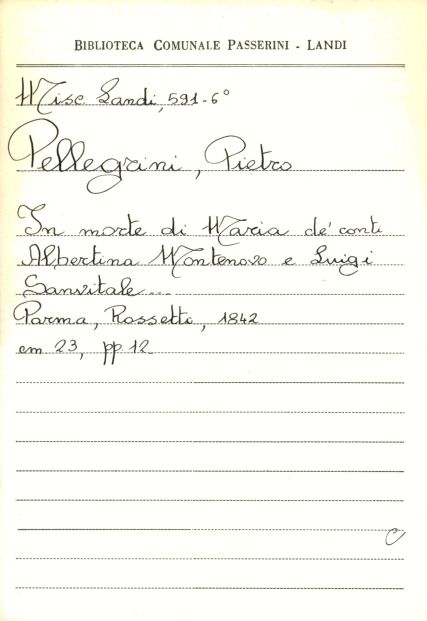 BIBLIOTECA COMUNALE PASSERINI - LANDI
Misc. Landi, 591-6°
Pellegrini, Pietro
In morte di Maria de' conti
Albertina Montenovo e Luigi
Sanvitale...
Parma, Rossetti, 1842
cm 23, pp 12.
C